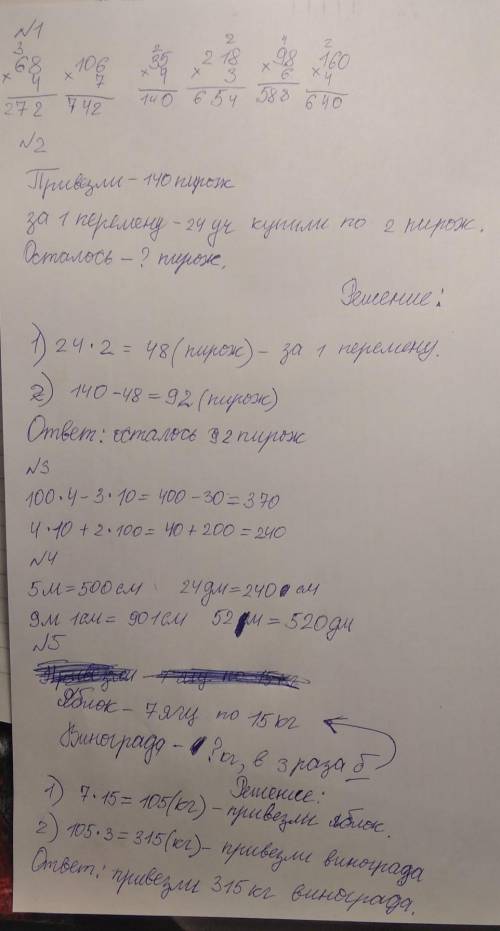 №1
3 2 2 4 2
×68 ×106 ×35 ×218 ×98 ×160
4 7 4 3 6 4
272 742 140 654 588 640
№2
Привезли – 140 пирож
за 1 перемену – 24 уч купили по 2 пирож.
Осталось – ? пирож.
Решение:
1) 24·2 = 48 (пирож) – за 1 перемену.
2) 140 – 48 = 92 (пирож)
Ответ: осталось 92 пирож
№3
100·4 – 3·10 = 400 – 30 = 370
4·10 + 2·100 = 40 + 200 = 240
№4
5м = 500см 24дм = 240 см
9м 1см = 901см 52м = 520дм
№5
Яблок – 7 ящ по 15 кг
Винограда – ? кг, в 3 раза б
Решение:
1) 7·15 = 105 (кг) – привезли яблок.
2) 105·3 = 315 (кг) – привезли винограда
Ответ: привезли 315 кг винограда.